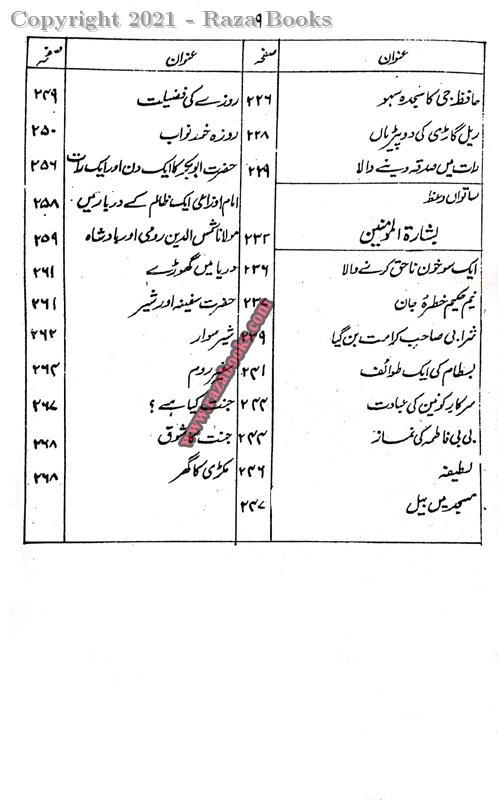 Copyright 2021 - Raza Books
۹
عنوان صفحہ
حافظ جی کا سجدہ سہو ۲۲۶
ریل گاڑی کی دو پٹریاں ۲۲۸
رات میں صدقہ دینے والا ۲۲۹
ساتواں وعظ
بشارۃ المؤمنین ۲۳۲
ایک سو خون ناحق کرنے والا ۲۳۶
نیم حکیم خطرۂ جان
شرابی صاحب کرامت بن گیا ۲۳۹
بسطام کی ایک طوائف ۲۴۱
سرکار کونین کی عبادت ۲۴۴
بی بی فاطمہ کی نماز ۲۴۴
لطیفہ ۲۴۶
مسجد میں بیل ۲۴۷
عنوان صفحہ
روزے کی فضیلت ۲۴۹
روزہ خور نواب ۲۵۰
حضرت ابوبکر کا ایک دن اور ایک رات ۲۵۶
امام اوزاعی ایک ظالم کے دربار میں ۲۵۸
مولانا شمس الدین رومی اور بادشاہ ۲۵۹
دریا میں گھوڑے ۲۶۱
حضرت سفینہ اور شیر ۲۶۱
شیر سوار ۲۶۲
سفیر روم ۲۶۴
جنت کیا ہے؟ ۲۶۷
جنت کا شوق ۲۶۸
مکڑی کا گھر ۲۶۸
www.razabooks.com